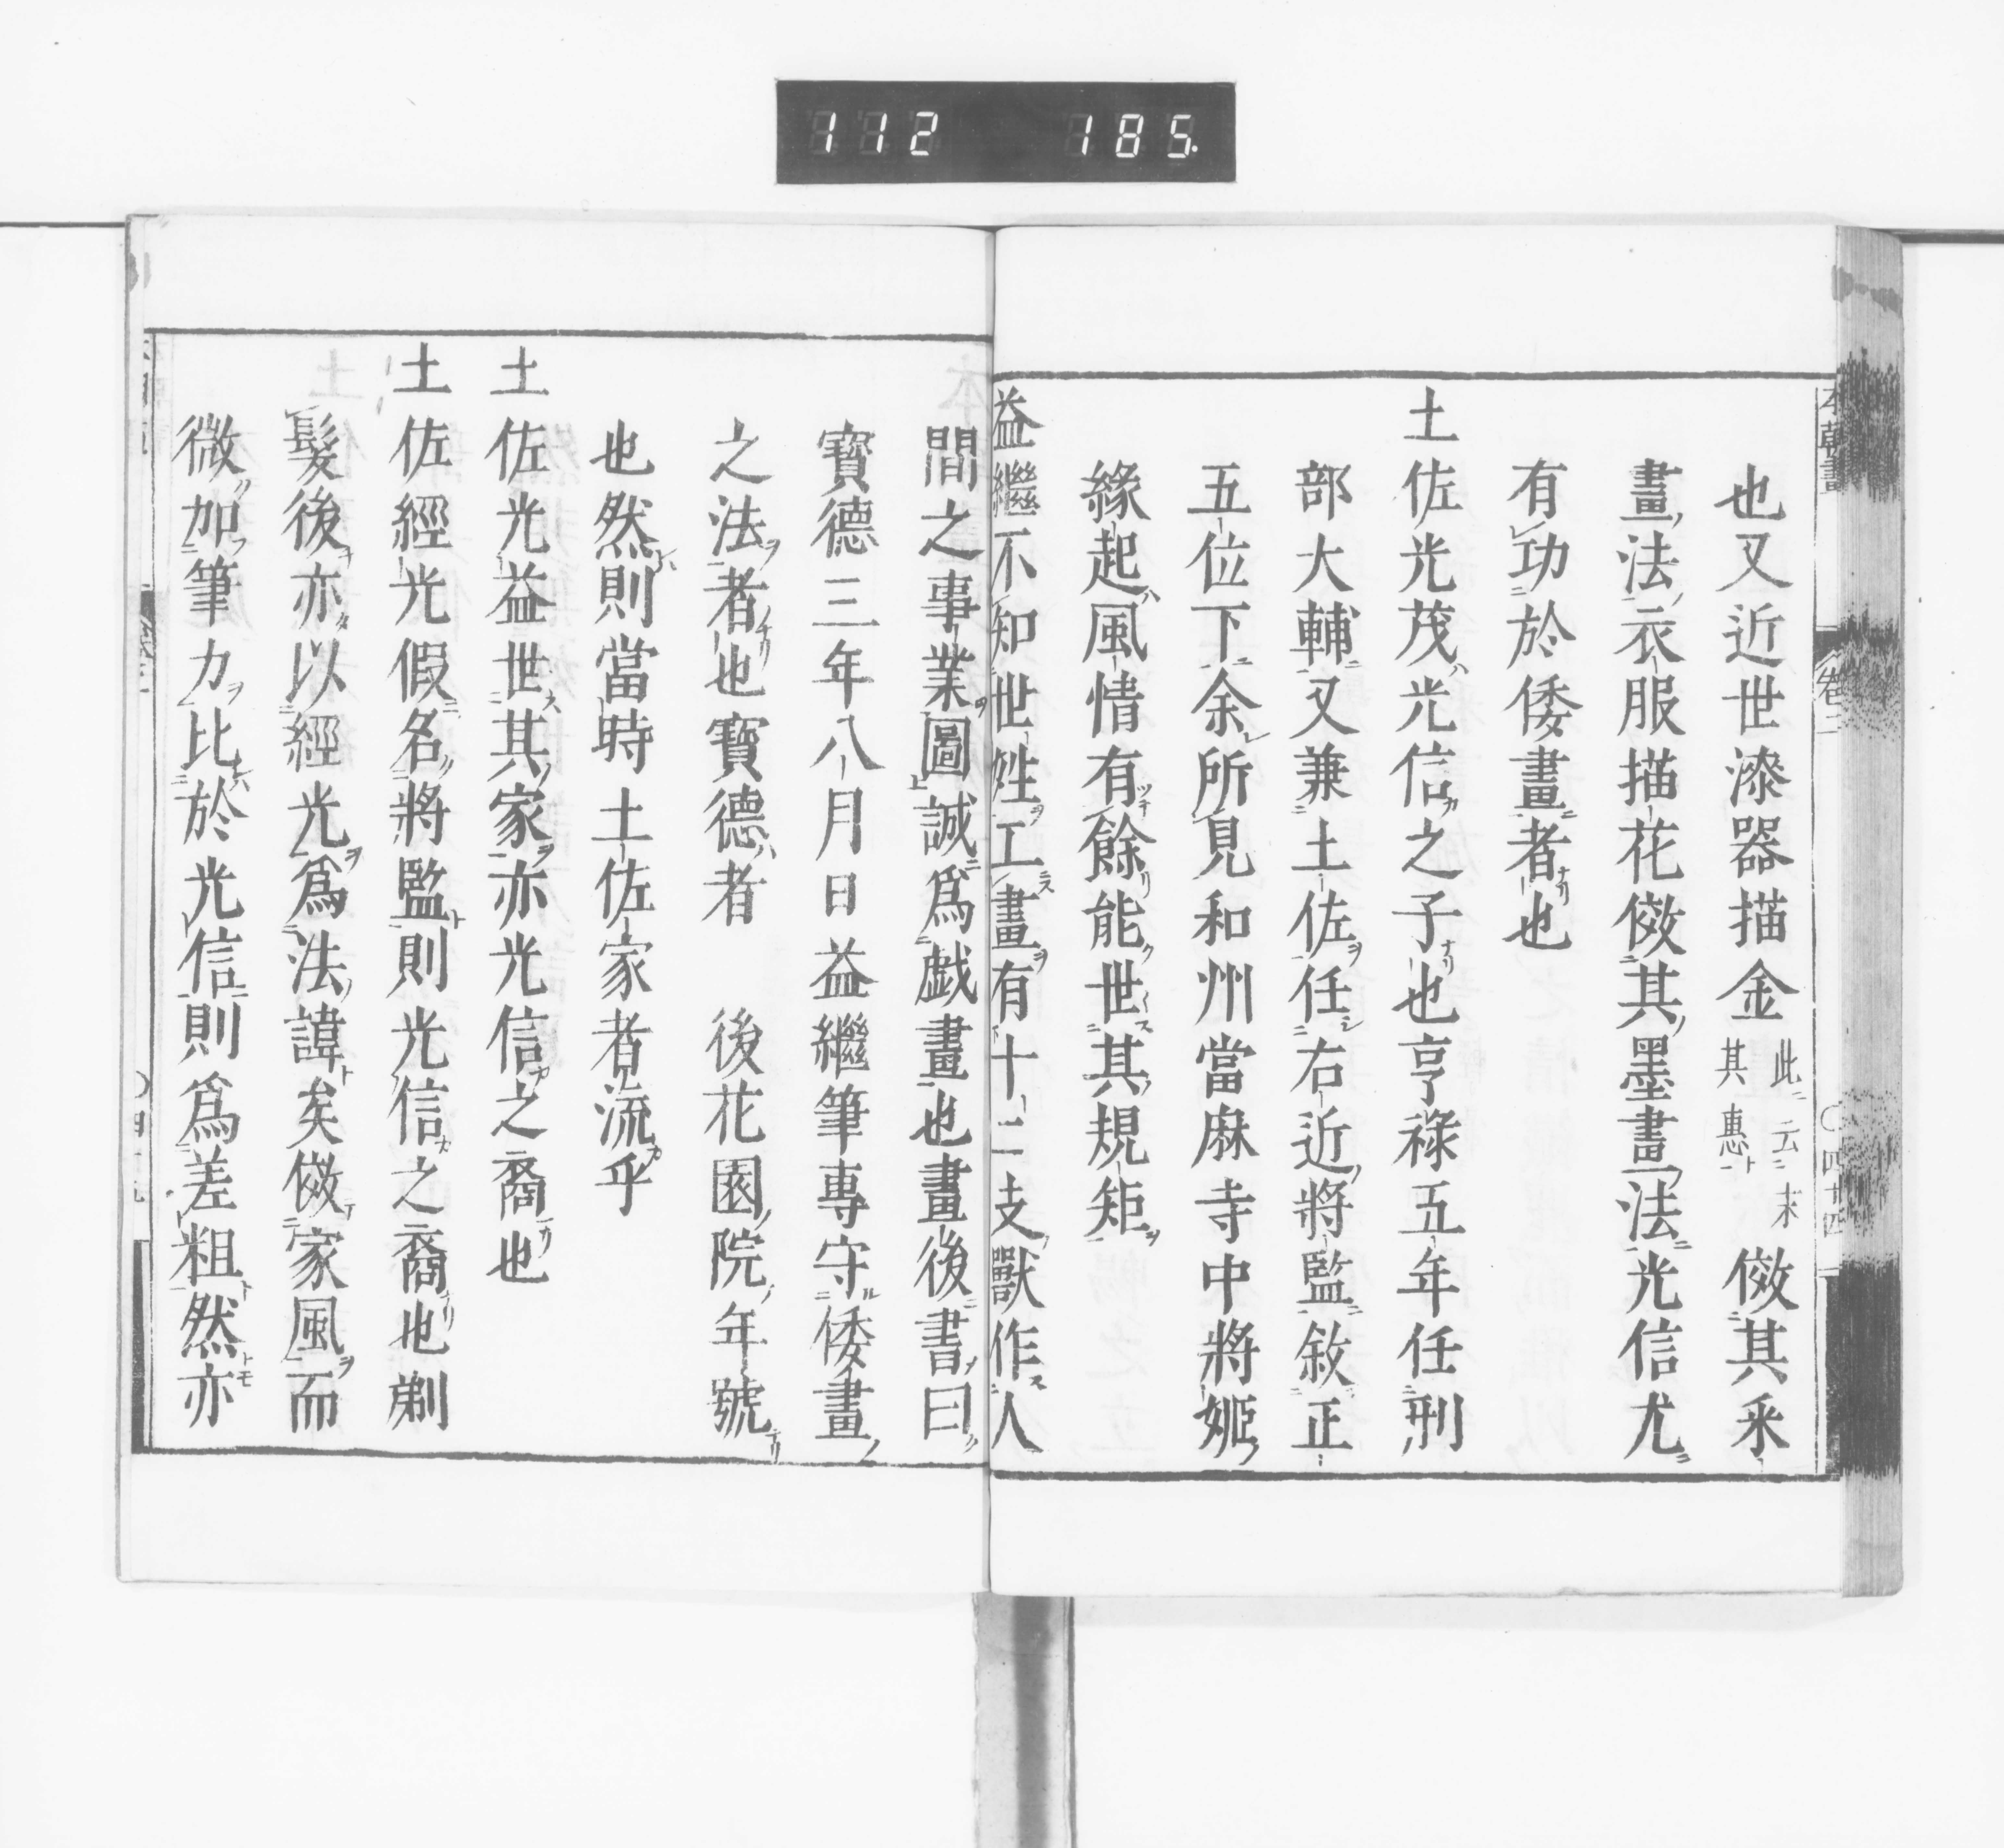 112 185.
本朝畫 卷二 〇四十四
也又近世漆器描金此云末其惠倣其釆
畫法衣服描花倣其墨畫法光信尤
有功於倭畫者也
土佐光茂光信之子也亨祿五年任刑
部大輔又兼土佐任右近將監敘正
五位下余所見和州當麻寺中將姬
緣起風情有餘能世其規矩
益繼不知世姓工畫有十二支獸作人
間之事業圖誠爲戯畫也畫後書曰
寶德三年八月日益繼筆專守倭畫
之法者也寶德者 後花園院年號
也然則當時土佐家者流乎
土佐光益世其家亦光信之裔也
土佐經光假名將監則光信之裔也剃
髮後亦以經光爲法諱矣倣家風而
微加筆力比於光信則爲差粗然亦